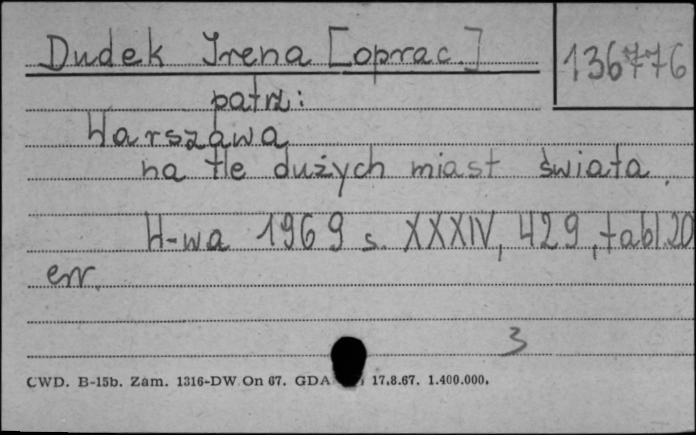 Dudek Irena [oprac.]
136776
patrz:
Warszawa
na tle dużych miast świata.
W-wa 1969 s. XXXIV, 429, tabl. 20
err.
3
CWD. B-15b. Zam. 1316-DW On 67. GDA 17.8.67. 1.400.000.